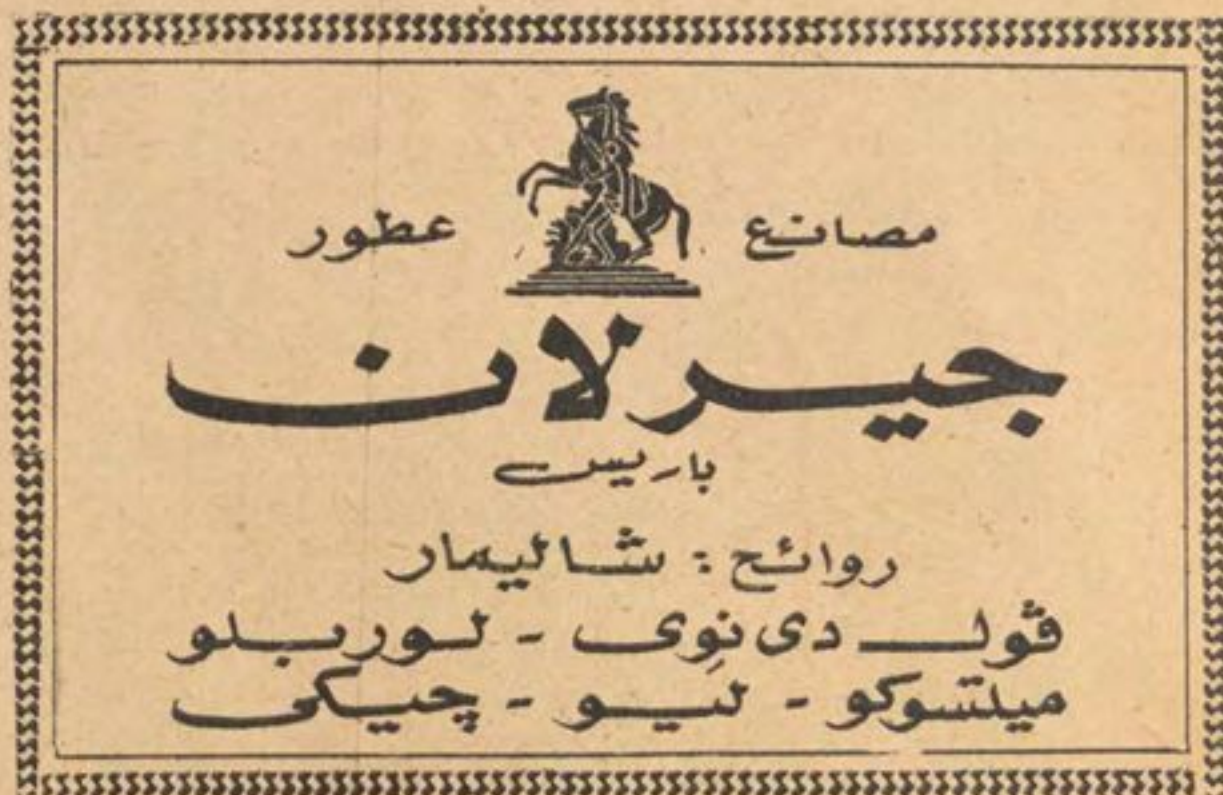 مصانع عطور
جيرلان
باريس
روائح : شاليمار
ڤول دى نوِى - لوربلو
ميتسوكو - ليو - چيكى